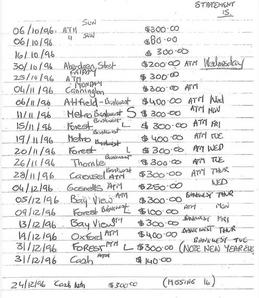 STATEMENT
15.
SUN
06/10/96 ATM $300.00
06/10/96 " SUN $80.00
16/10/96 $300.00
30/10/96 Aberdeen Street $200.00 ATM Wednesday
FRIDAY
25/10/96 ATM $300.00
MONDAY
04/11/96 Cannington $300.00
06/11/96 Bankwest $400.00 ATM WED
11/11/96 Metro Bankwest S $300.00 ATM MON
15/11/96 Forest Bankwest L $300.00 ATM FRI
19/11/96 Metro Bankwest $400.00 ATM TUE
20/11/96 Forest L $300.00 ATM WED
26/11/96 Thornlie Bankwest $300.00 ATM TUE
28/11/96 Carousel ATM $300.00 ATM THUR
04/12/96 Gosnells ATM $250.00 WED
05/12/96 Bay View ATM $300.00 BANKWEST THUR
09/12/96 Forest Bankwest L $100.00 ATM MON
13/12/96 Bay View ATM $300.00 BANKWEST FRI
19/12/96 Oxford ATM $400.00 BANKWEST THUR
31/12/96 Forest ATM L $300.00 BANKWEST TUE (NOTE NEW YEAR EVE
31/12/96 Cash ATM $140.00
24/12/96 Cash $500.00 (MISSING 16)